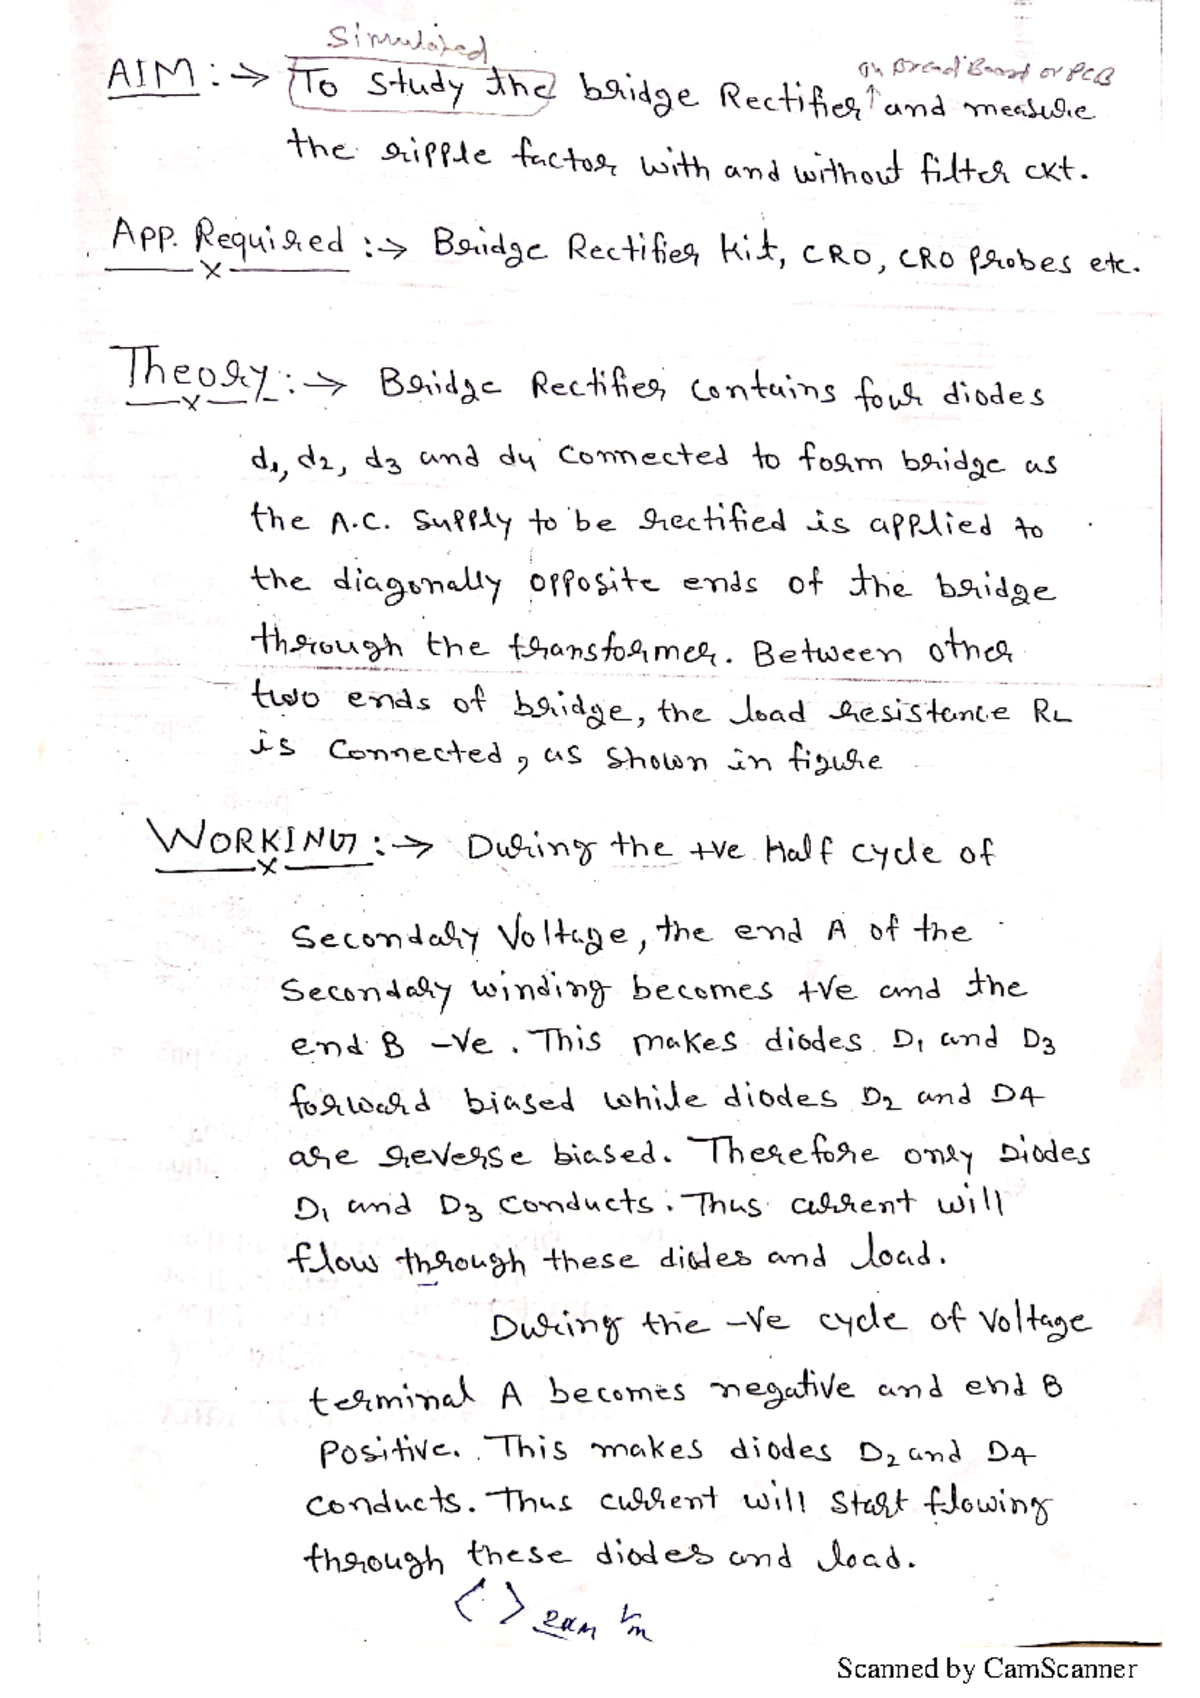 Simulated
on Bread Board or PCB
AIM :→ To study the bridge Rectifier ↑ and measure
the ripple factor with and without filter ckt.
App. Required :→ Bridge Rectifier Kit, CRO, CRO Probes etc.
Theory :→ Bridge Rectifier contains four diodes
d1, d2, d3 and d4 connected to form bridge as
the A.C. supply to be rectified is applied to
the diagonally opposite ends of the bridge
through the transformer. Between other
two ends of bridge, the load resistance RL
is connected, as shown in figure
WORKING :→ During the +ve Half cycle of
Secondary Voltage, the end A of the
Secondary winding becomes +ve and the
end B -ve. This makes diodes D1 and D3
forward biased while diodes D2 and D4
are reverse biased. Therefore only Diodes
D1 and D3 conducts. Thus current will
flow through these diodes and load.
During the -ve cycle of voltage
terminal A becomes negative and end B
Positive. This makes diodes D2 and D4
conducts. Thus current will start flowing
through these diodes and load.
Scanned by CamScanner